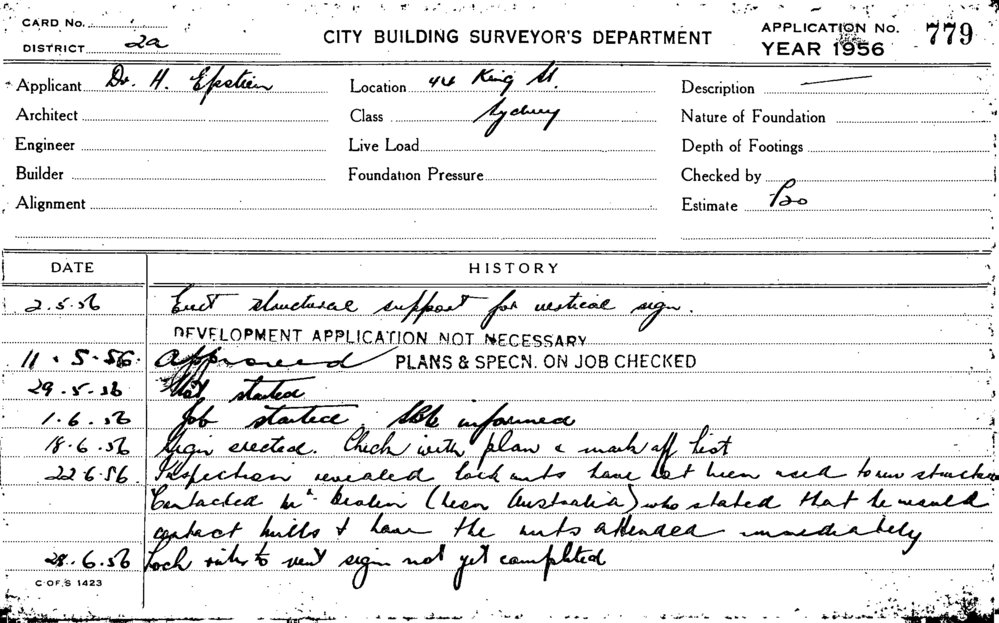 CARD No.
DISTRICT 2a
CITY BUILDING SURVEYOR'S DEPARTMENT
APPLICATION No. 779
YEAR 1956
Applicant Dr. H. Epstien
Location 44 King St.
Description
Architect
Class Sydney
Nature of Foundation
Engineer
Live Load
Depth of Footings
Builder
Foundation Pressure
Checked by
Alignment
Estimate
DATE HISTORY
2.5.56 Erect structural support for vertical sign.
DEVELOPMENT APPLICATION NOT NECESSARY
11.5.56. Approved PLANS & SPECN. ON JOB CHECKED
29.5.56 Not started
1.6.56 Job started informed
18.6.56 Sign erected. Check with plan & mark off list
22.6.56 Inspection revealed lock nuts have not been used
Contacted Mr (Neon Australia) who stated that he would
contact & have the nuts attended immediately
28.6.56 Lock nuts to sign not yet completed
C.OF.S 1423